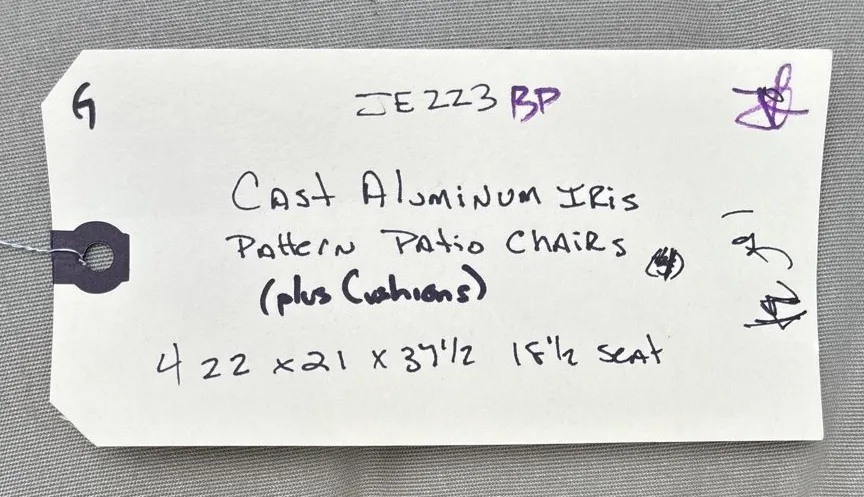 G JE223 BP
Cast Aluminum Iris
Pattern Patio Chairs (4)
(plus Cushions)
4 22 x 21 x 37 1/2 18 1/2 seat